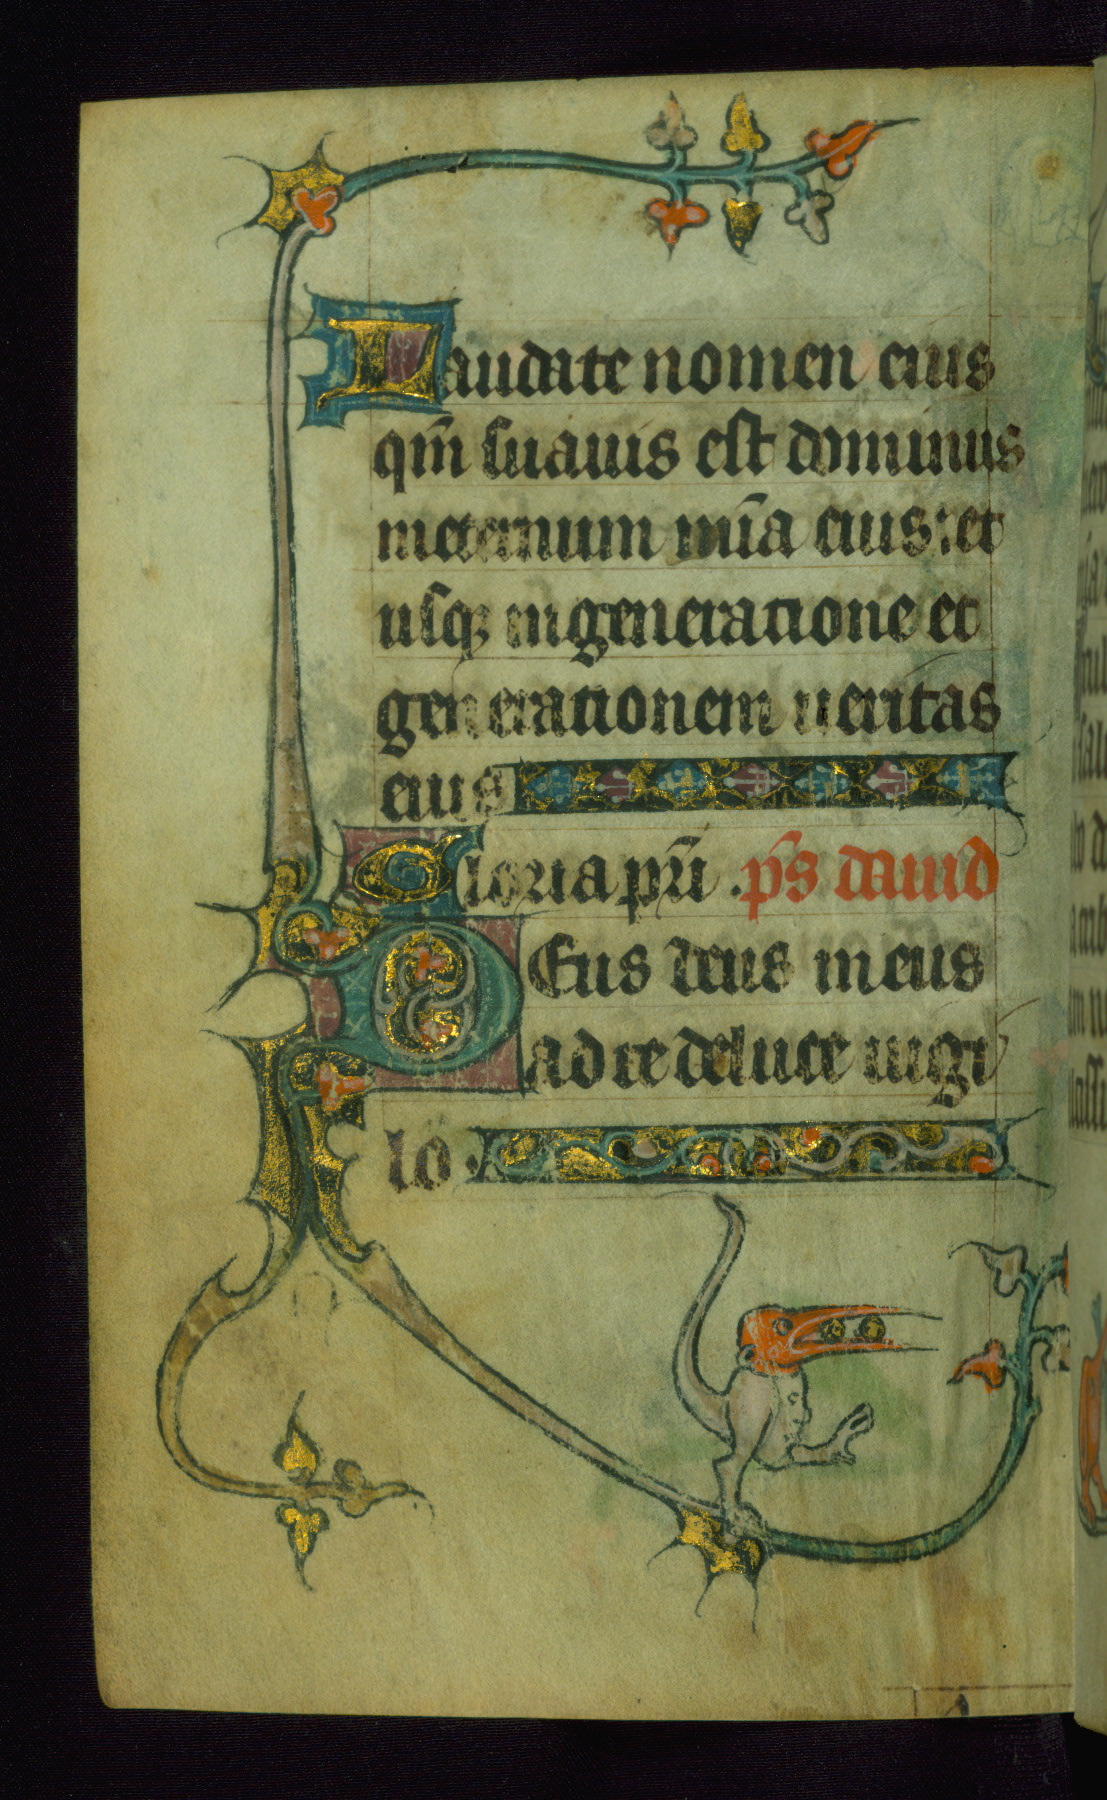 Laudate nomen eius
qm̅ suauis est dominus
ineternum mīa eius: et
usq; in generatione et
generationem ueritas
eius
Gloria pr̄i . ps̄ dauid
DEus deus meus
ad te de luce uigi
lo .